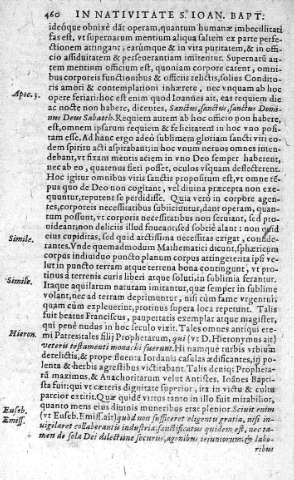 460 IN NATIVITATE S. IOAN. BAPT:
ideóque obixè dāt operam, quantum humanæ imbecillitati
fas est, vt supernarum mentium aliqua saltem ex parte perfe-
ctionem attingant: earúmque & in vita puritatem, & in offi-
cio assiduitatem & perseuerantiam imitentur. Supernarū au-
tem mentium officium est, vt quoniam corpore carent, omni-
bus corporeis functionibus & officiis relictis, solius Condito-
ris amori & contemplationi inhærere, nec vnquam ab hoc
opere feriari: hoc est enim quod Ioannes ait, eas requiem die
Apoc. 3.
ac nocte non habere, dicentes, Sanctus, sanctus, sanctus Domi-
nus Deus Sabaoth. Requiem autem ab hoc officio non habere,
est, omnem ipsarum requiem & felicitatem in hoc vno posi-
tam esse. Ad hanc ergo adeò sublimem gloriam sancti viri eo-
dem spiritu acti aspirabant; in hoc vnum neruos omnes inten-
debant, vt fixam mentis aciem in vno Deo semper haberent,
nec ab eo, quatenus fieri posset, oculos vsquam deflecterent.
Hoc igitur omnibus viris sanctis propositum est, vt omne tē-
pus quo de Deo non cogitant, vel diuina præcepta non exe-
quuntur, reputent se perdidisse. Quia verò in corpore agen-
tes, corporeis necessitatibus subiiciuntur, dant operam, quan-
tum possunt, vt corporis necessitatibus non seruiant, sed pro-
uideant: non deliciis illud foueant, sed sobriè alant: non quid
eius cupiditas, sed quid arctissima necessitas exigat, conside-
Simile.
rantes. Vnde quemadmodum Mathematici dicunt, sphæricum
corpus indiuiduo puncto planum corpus attingere: ita ipsi ve-
lut in puncto terram atque terrena bona contingunt, vt pro-
tinus à terrenis curis liberi atque soluti, in sublimia ferantur.
Simile.
Itaque aquilarum naturam imitantur, quæ semper in sublime
volant, nec ad terram deprimuntur, nisi cùm fame vrgentur:
quam cùm expleuerint, protinus supera loca repetunt. Talis
fuit beatus Franciscus, paupertatis exemplar atque magister,
qui penè nudus in hoc seculo vixit. Tales omnes antiqui ere-
Hieron.
mi Patres: tales filij Prophetarum, qui (vt D. Hieronymus ait)
veteris testamenti monachi fuerunt. Hi namque turbis vrbium
derelictis, & prope fluenta Iordanis casulas ædificantes,
polenta & herbis agrestibus victitabant. Talis denique Propheta-
rū maximus, & Anachoritarum velut Antistes, Ioannes Bapti-
sta fuit: qui vt cæteris dignitate superior, ita in victu & cultu
parcior extitit. Quæ quidē virtus tanto in illo fuit mirabilior,
quanto mens eius diuinis muneribus erat plenior. Sciuit enim
Euseb.
Emiss.
(vt Euseb. Emiss. ait) quòd non sufficeret eligentis gratia, nisi in-
uigilaret collaborantis industria: sanctificatus quidem est, nec ta-
men de sola Dei dilectione securus, agonibus ieiuniorum & labo-
ribus